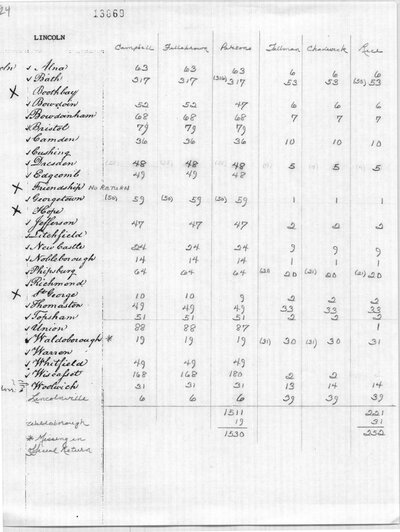 24
13869
LINCOLN
Campbell Fillebrown Parsons Tallman Chadwick Rice
oln s Alna 63 63 63 6 6 6
s Bath 317 317 (316) 317 53 53 (50) 53
X Boothbay
s Bowdoin 52 52 47 6 6 6
s Bowdoinham 68 68 68 7 7 7
s Bristol 79 79 79
s Camden 36 36 36 10 10 10
s Cushing
s Dresden 48 48 48 5 5 5
s Edgcomb 49 49 48
X Friendship NO RETURN
s Georgetown (50) 59 (50) 59 (50) 59 1 1 1
X Hope
s Jefferson 47 47 47 2 2 2
s Litchfield
s New Castle 24 24 24 9 9 9
s Nobleborough 14 14 14 1 1 1
s Phipsburg 64 64 64 (20 20 (21) 20 (21) 20
s Richmond
X St George 10 10 9 2 2 2
s Thomaston 49 49 49 33 33 33
s Topsham 51 51 51 2 2 2
s Union 88 88 87 1
s Waldoborough * 19 19 19 (31) 30 (31) 30 31
s Warren
s Whitfield 49 49 49
s Wiscasset 168 168 180 2 2
s Woolwich 31 31 31 13 14 14
Lincolnville 6 6 6 39 39 39
1511 221
Waldoborough 19 31
* Missing in 1530 252
Return